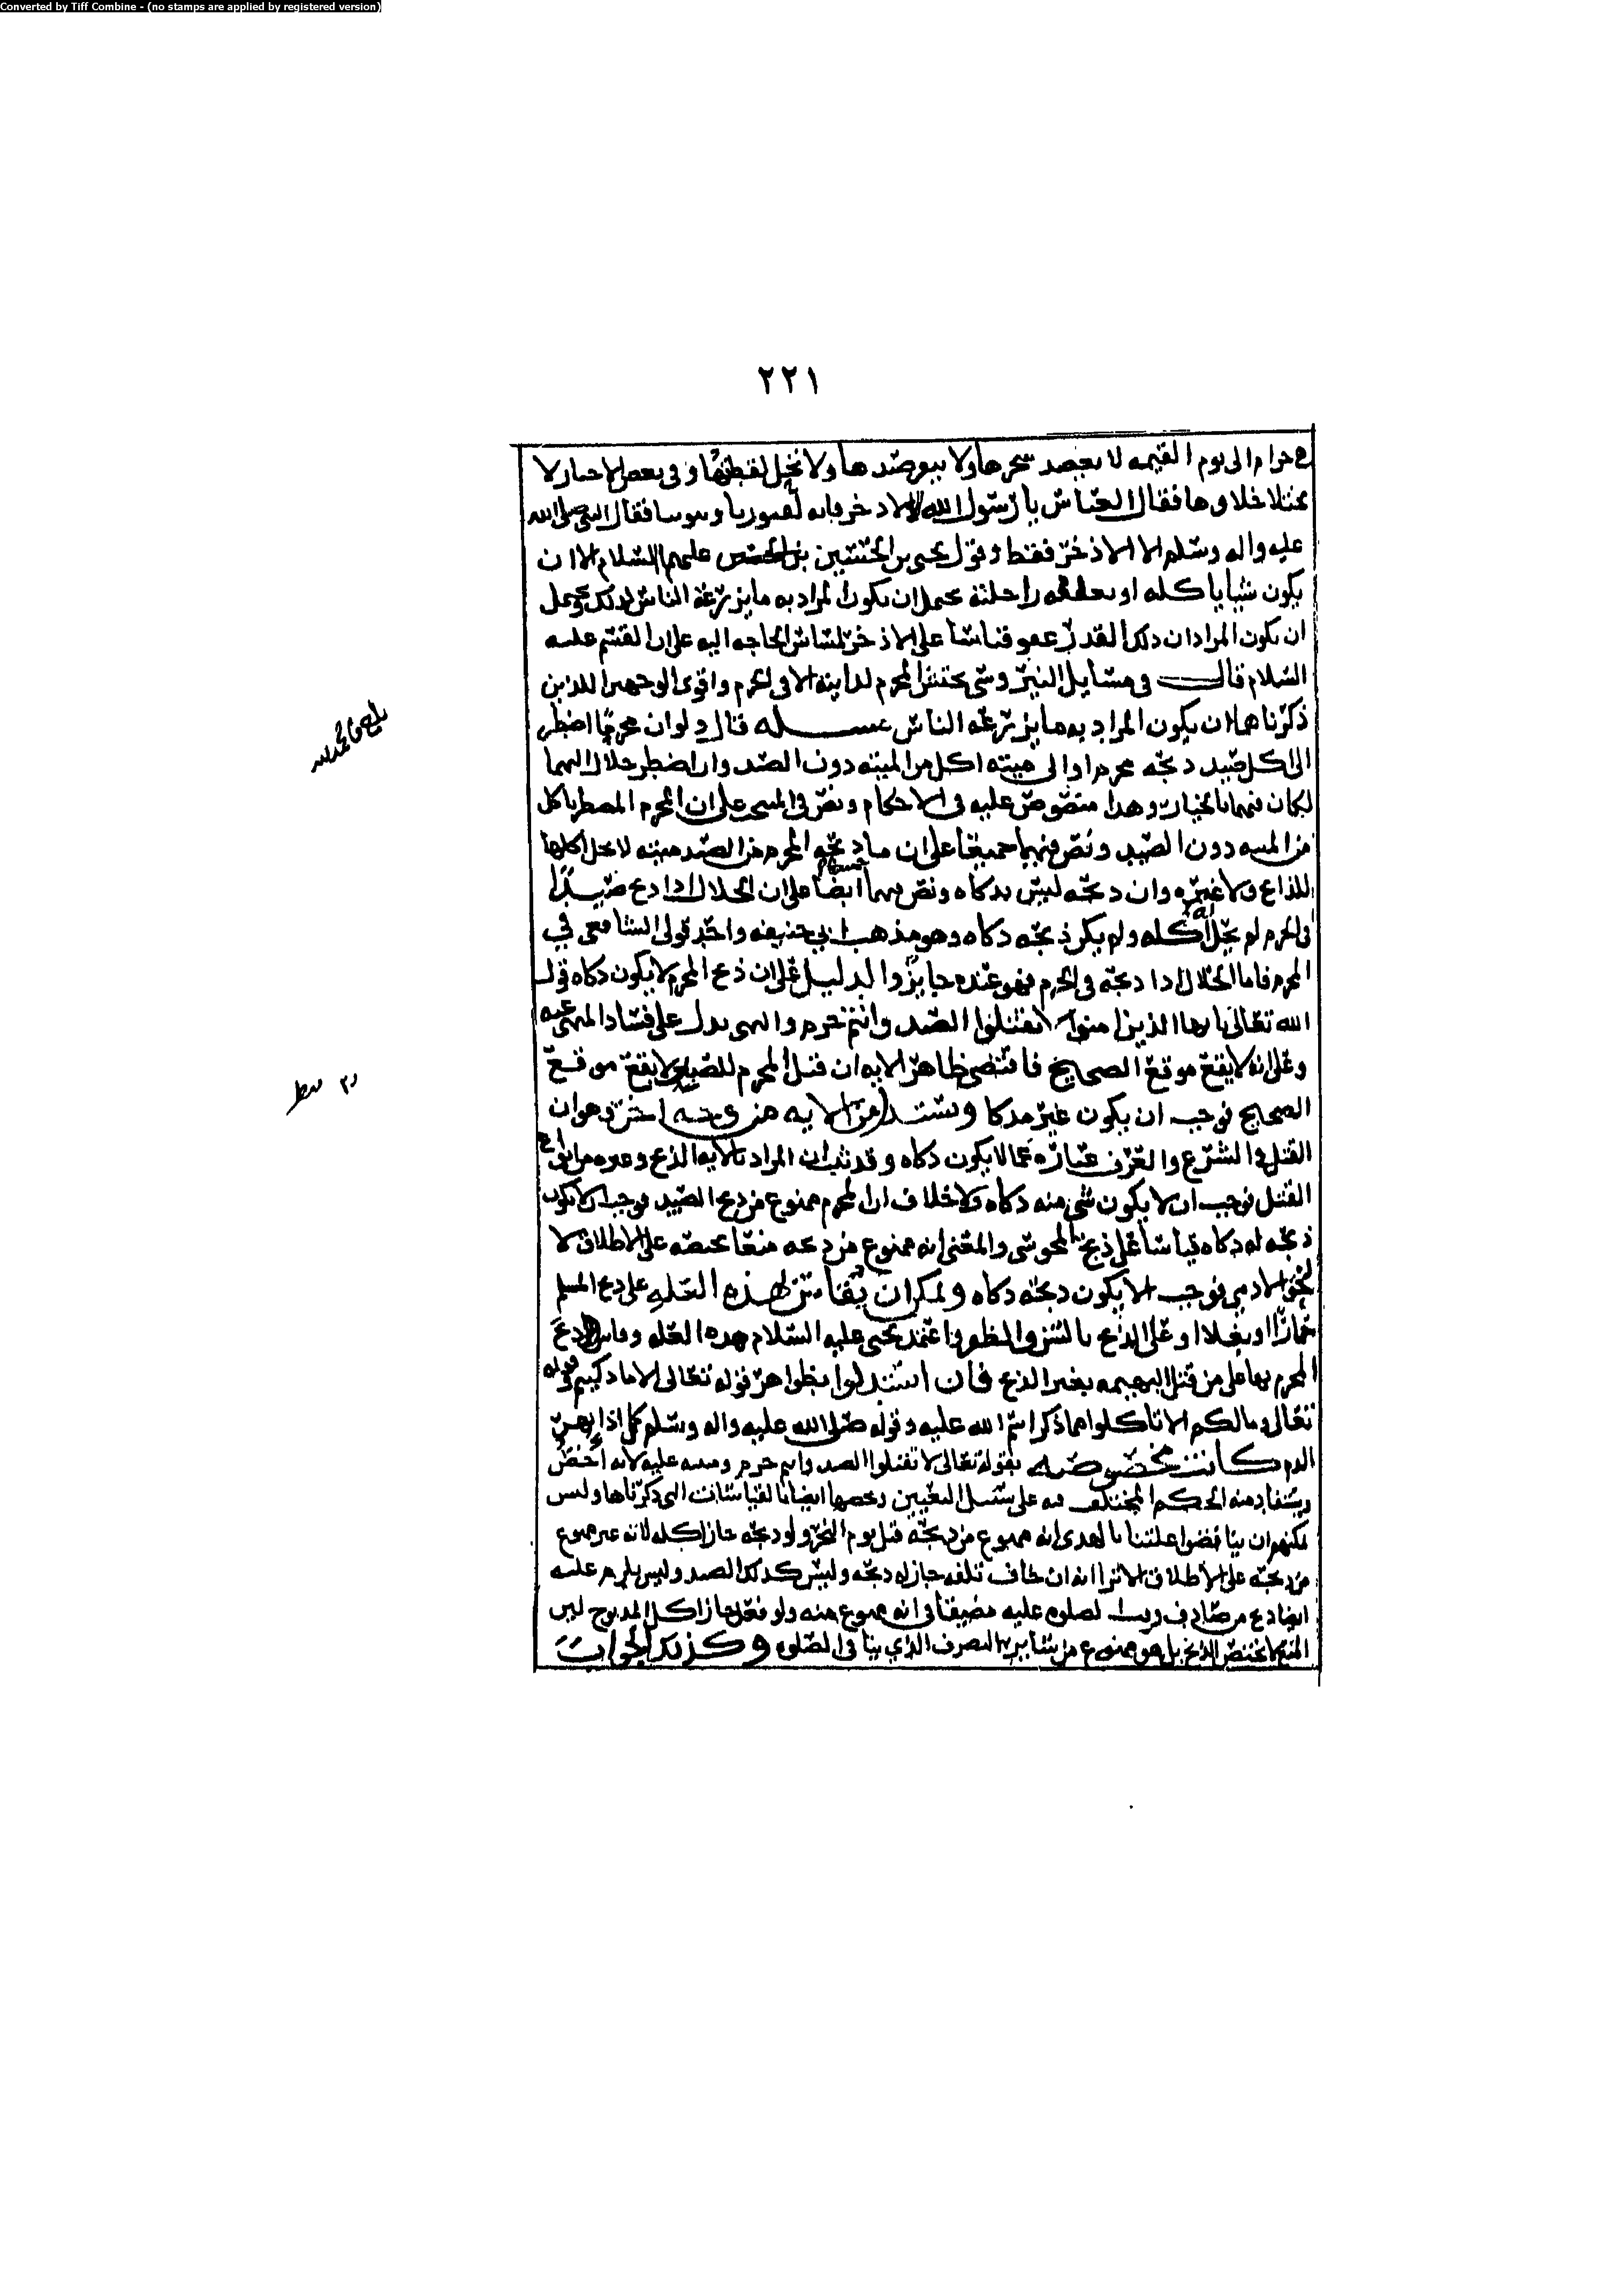 Converted by Tiff Combine - (no stamps are applied by registered version)
٢٢١
حرام الى يوم القيمه لا يعضد شجرها ولا ينفر صيدها ولا تحل لقطتها وفي بعض الاخبار لا
يختلا خلاوها فقال العباس يا رسول الله الا الاذخر فانه لقبورنا وبيوتنا فقال النبي صلى الله
عليه واله وسلم الا الاذخر فقط وقول يحيى بن الحسين عليهم السلام الا ان
يكون شيا ياكله او راحلته يحمل ان يكون المراد به ما يزرعه الناس لذلك ويحتمل
ان يكون المراد ان ذلك القدر عفو قياسا على الاذخر لمساس الحاجه اليه على ان القسم عليه
السلام قال في مسايل النيروسي يحتش المحرم لدابته الا في الحرم واقوى الوجهين اللذين
ذكرناهما ان يكون المراد به ما يزرعه الناس مسله قال ولو ان محرما اضطر
الى اكل صيد ذبحه محرم او الى ميته اكل من الميته دون الصيد وان اضطر حلال اليهما
لكان فيهما بالخيار وهذا منصوص عليه في الاحكام ونص في المنتخب على ان المحرم المضطر ياكل
من الميته دون الصيد ونص فيهما جميعا على ان ما ذبحه المحرم من الصيد ميته لا يحل اكلها
للذابح ولا غيره وان ذبحه ليس بذكاه ونص فيهما ايضا على ان الحلال اذا ذبح صيدا
في الحرم لم يحل اكله ولم يكن ذبحه ذكاه وهو مذهب ابي حنيفه واحد قولي الشافعي في
المحرم فاما الحلال اذا ذبحه في الحرم فهو عنده جايز والدليل على ان ذبح المحرم لا يكون ذكاه قول
الله تعالى يا ايها الذين امنوا لا تقتلوا الصيد وانتم حرم والنهي يدل على فساد المنهي عنه
وعلى انه لا يقع موقع الصحيح فاقتضى ظاهر الايه ان قتل المحرم للصيد لا يقع موقع
الصحيح فوجب ان يكون غير مذكا ويستدل من الايه من وجه اخر وهو ان
القتل في الشرع والعرف عباره عما لا يكون ذكاه وقد ثبت ان المراد بالايه الذبح وغيره من انواع
القتل فوجب ان لا يكون شي منه ذكاه ولا خلاف ان المحرم ممنوع من ذبح الصيد فوجب ان لا يكون
ذبحه له ذكاه قياسا على ذبح المجوسي والمعنى انه ممنوع من ذبحه منعا يخصه على الاطلاق لا
لحق الادمي فوجب الا يكون ذبحه ذكاه ويمكن ان يقاس بهذه العله على ذبح المسلم
حمارا او بغلا او على الذبح بالسن والظفر واعتمد يحيى عليه السلام هذه العله وقاس ذبح
المحرم بها على من قتل البهيمه بغير الذبح فان استدلوا بظواهر قوله تعالى الا ما ذكيتم وقوله
تعالى وما لكم الا تاكلوا مما ذكر اسم الله عليه وقوله صلى الله عليه واله وسلم كل ما انهر
الدم كانت مخصوصه بقوله تعالى لا تقتلوا الصيد وانتم حرم ومبنيه عليه لانه اخص
ويستفاد منه الحكم المختلف فيه على سبيل التعيين ونخصها ايضا بالقياسات التي ذكرناها وليس
يمكنهم ان يناقضوا علتنا بالهدي انه ممنوع من ذبحه قبل يوم النحر ولو ذبحه جاز اكله لانه غير ممنوع
من ذبحه على الاطلاق الا ترا انه ان خاف تلفه جاز له ذبحه وليس كذلك الصيد وليس يلزم عليه
ايضا ذبح من صادف وقت الصلوه عليه مضيقا في انه ممنوع منه ولو فعل جاز اكل المذبوح ليس
المنع لا يختص الذبح بل هو ممنوع من ساير التصرف الذي ينافي الصلوه وكذلك الجواب